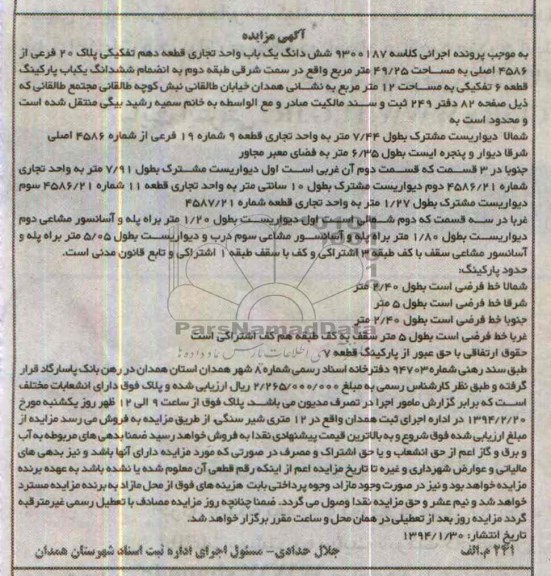 آگهی مزایده
به موجب پرونده اجرائی کلاسه ۹۳۰۰۱۸۷ شش دانگ یک باب واحد تجاری قطعه دهم تفکیکی پلاک ۲۰ فرعی از
۴۵۸۶ اصلی به مساحت ۴۹/۲۵ متر مربع واقع در سمت شرقی طبقه دوم به انضمام ششدانگ یکباب پارکینگ
قطعه ۶ تفکیکی به مساحت ۱۲ متر مربع به نشانی همدان خیابان طالقانی نبش کوچه طالقانی مجتمع طالقانی که
ذیل صفحه ۸۲ دفتر ۲۴۹ ثبت و سند مالکیت صادر و مع الواسطه به خانم سمیه رشید بیگی منتقل شده است
و محدود است به
شمالا دیواریست مشترک بطول ۷/۴۴ متر به واحد تجاری قطعه ۹ شماره ۱۹ فرعی از شماره ۴۵۸۶ اصلی
شرقا دیوار و پنجره ایست بطول ۶/۳۵ متر به فضای معبر مجاور
جنوبا در ۳ قسمت که قسمت دوم آن غربی است اول دیواریست مشترک بطول ۷/۹۱ متر به واحد تجاری
شماره ۴۵۸۶/۲۱ دوم دیواریست مشترک بطول ۱۰ سانتی متر به واحد تجاری قطعه ۱۱ شماره ۴۵۸۶/۲۱ سوم
دیواریست مشترک بطول ۱/۲۷ متر به واحد تجاری قطعه شماره ۴۵۸۷/۲۱
غربا در سه قسمت که دوم شمالی است اول دیواریست بطول ۱/۲۰ متر براه پله و آسانسور مشاعی دوم
دیواریست بطول ۱/۸۰ متر براه پله و آسانسور مشاعی سوم درب و دیواریست بطول ۵/۰۵ متر براه پله و
آسانسور مشاعی سقف با کف طبقه ۳ اشتراکی و کف با سقف طبقه ۱ اشتراکی و تابع قانون مدنی است.
حدود پارکینگ:
شمالا خط فرضی است بطول ۲/۴۰ متر
شرقا خط فرضی است بطول ۵ متر
جنوبا خط فرضی است بطول ۲/۴۰ متر
غربا خط فرضی است بطول ۵ متر سقف به کف طبقه هم کف اشتراکی است
حقوق ارتفاقی با حق عبور از پارکینگ قطعه ۷
طبق سند رهنی شماره ۹۴۷۰۳ دفترخانه اسناد رسمی شماره ۸ شهر همدان استان همدان در رهن بانک پاسارگاد قرار
گرفته و طبق نظر کارشناس رسمی به مبلغ ۲/۲۶۵/۰۰۰/۰۰۰ ریال ارزیابی شده و پلاک فوق دارای انشعابات مختلف
است که برابر گزارش مامور اجرا در تصرف مدیون می باشد. پلاک فوق از ساعت ۹ الی ۱۲ ظهر روز یکشنبه مورخ
۱۳۹۴/۲/۲۰ در اداره اجرای ثبت همدان واقع در ۱۲ متری شیر سنگی، از طریق مزایده به فروش می رسد مزایده از
مبلغ ارزیابی شده فوق شروع و به بالاترین قیمت پیشنهادی نقدا به فروش خواهد رسید ضمنا بدهی های مربوطه به آب
و برق و گاز اعم از حق انشعاب و یا حق اشتراک و مصرف در صورتی که مورد مزایده دارای آنها باشد و نیز بدهی های
مالیاتی و عوارض شهرداری و غیره تا تاریخ مزایده اعم از اینکه رقم قطعی آن معلوم شده یا نشده باشد به عهده برنده
مزایده خواهد بود و نیز در صورت وجود مازاد، وجوه پرداختی بابت هزینه های فوق از محل مازاد به برنده مزایده مسترد
خواهد شد و نیم عشر و حق مزایده نقدا وصول می گردد. ضمنا چنانچه روز مزایده مصادف با تعطیل رسمی غیرمترقبه
گردد مزایده روز بعد از تعطیلی در همان محل و ساعت مقرر برگزار خواهد شد.
تاریخ انتشار: ۱۳۹۴/۱/۳۰
۲۲۱ م.الف جلال حدادی- مسئول اجرای اداره ثبت اسناد شهرستان همدان
ParsNamadData